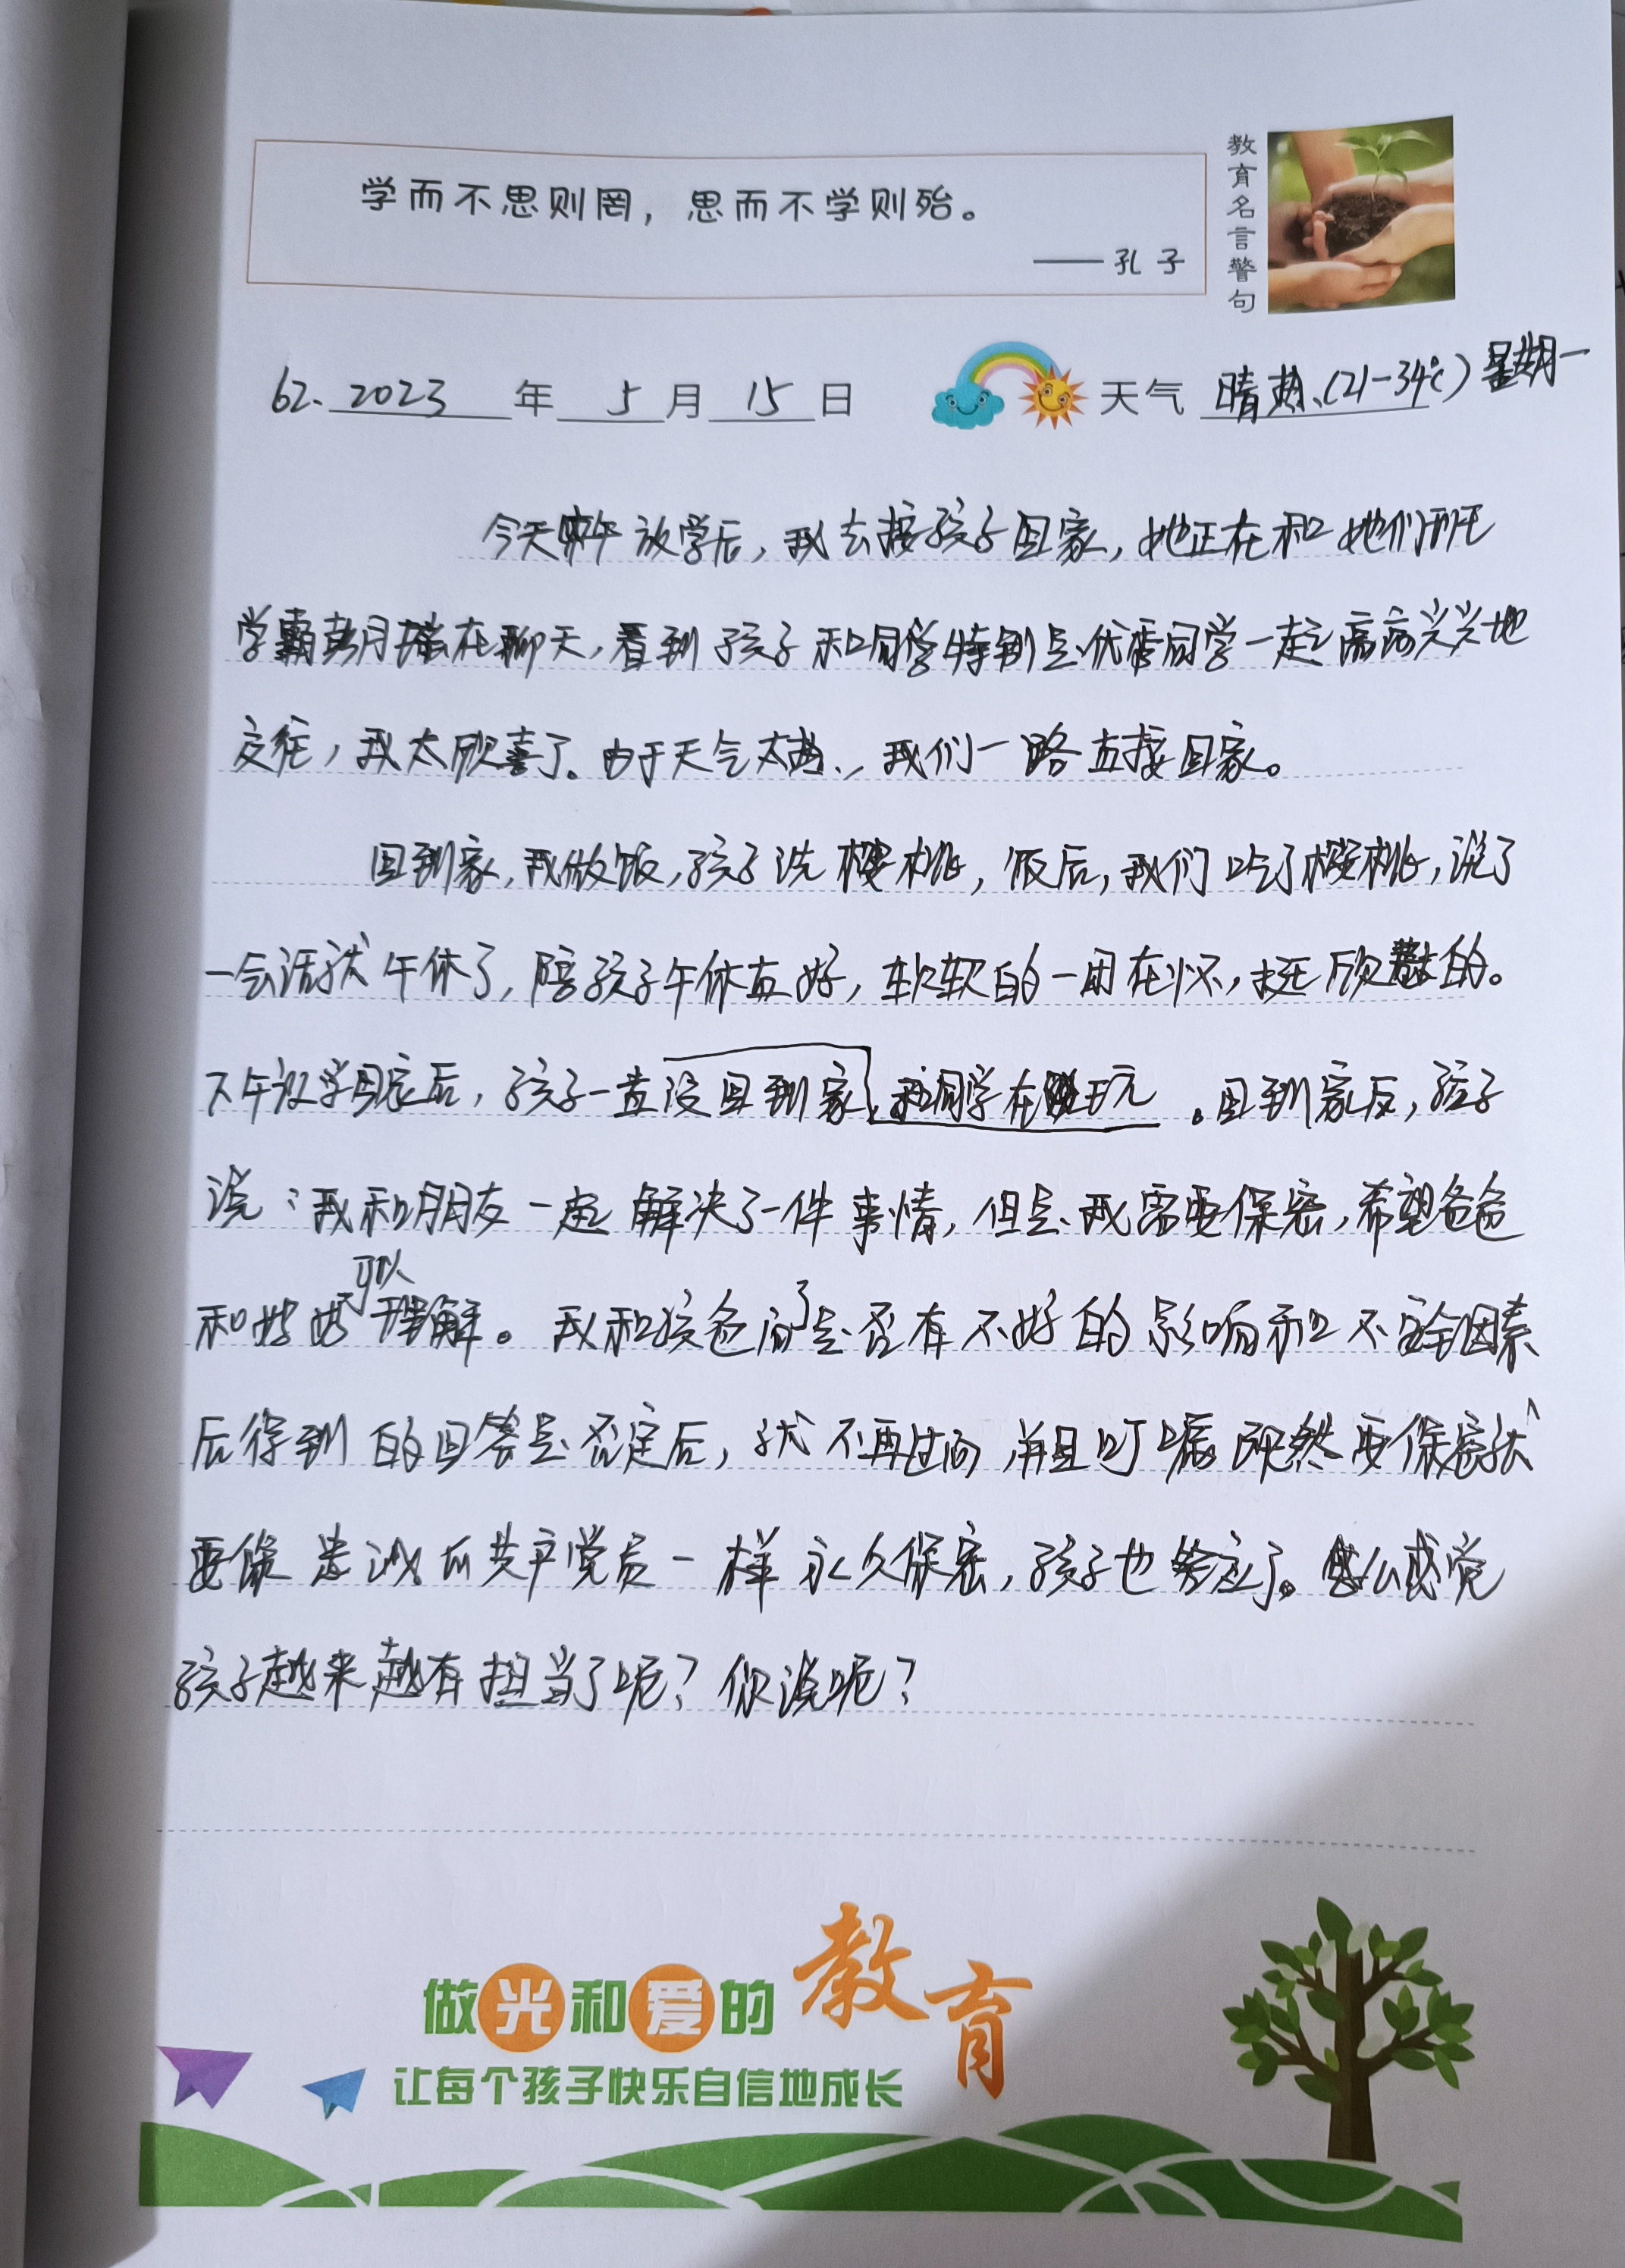 学而不思则罔，思而不学则殆。
——孔子
教育名言警句
62. 2023 年 5 月 15 日 天气 晴热（21-34℃）星期一
今天中午放学后，我去接孩子回家，她正在和她们班
学霸在聊天，看到孩子和同学特别是优秀同学一起高高兴兴地
交往，我太欣喜了。由于天气太热，我们一路直接回家。
回到家，我做饭，孩子洗樱桃，饭后，我们吃了樱桃，说了
一会话就午休了，陪孩子午休真好，软软的一团在怀，挺欣慰的。
下午放学回家后，孩子一直没回到家，和同学在玩。回到家后，孩子
说：我和朋友一起解决了一件事情，但是我需要保密，希望爸爸
和妈妈可以理解。我和孩爸问了是否有不好的影响和不安全因素
后得到的回答是否定后，就不再过问，并且叮嘱既然要保密就
要像忠诚的共产党员一样永久保密，孩子也答应了。怎么感觉
孩子越来越有担当了呢？你说呢？
做光和爱的教育
让每个孩子快乐自信地成长